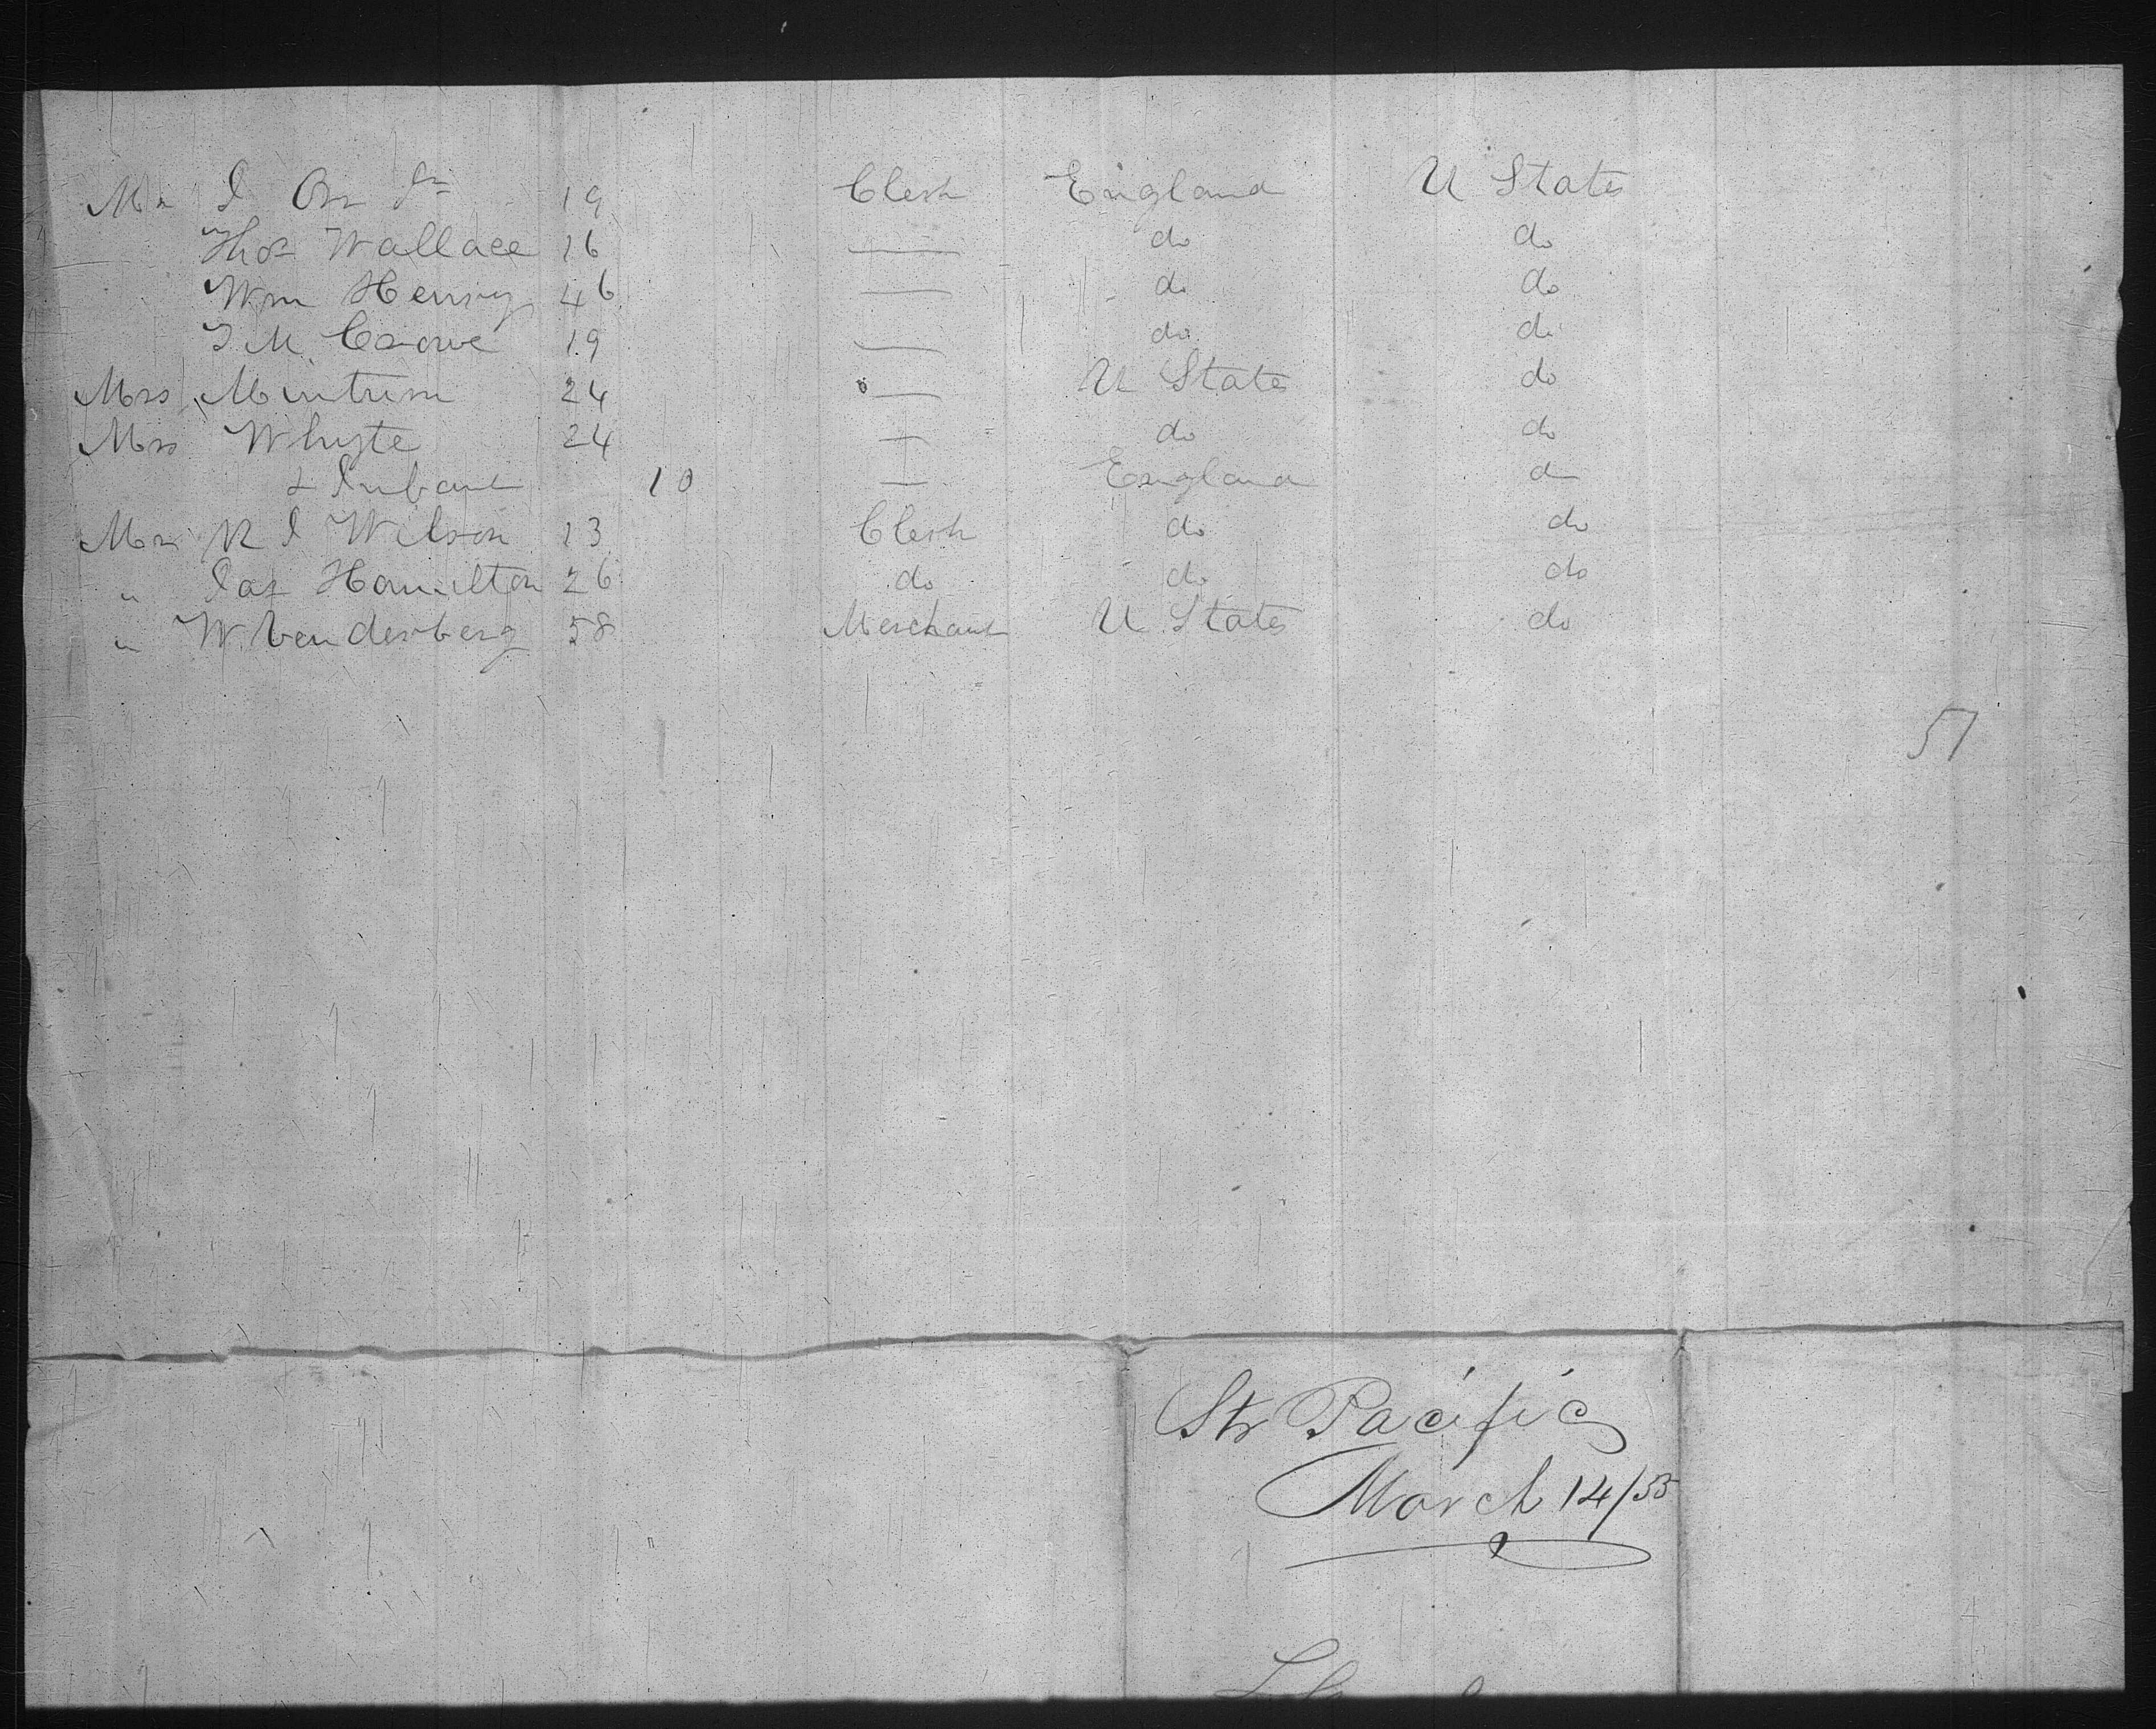 Mr I Orr Jr 19 Clerk England U States
Thos Wallace 16 — do do
Wm Henry 46 — do do
J M Crowe 19 — do do
Mrs Minturn 24 — U States do
Mrs Whyte 24 — do do
& Infant 10 — England do
Mr R I Wilson 13 Clerk do do
" Jas Hamilton 26 do do do
" W. Venderberg 58 Merchant U States do
57
Str Pacific
March 14/55